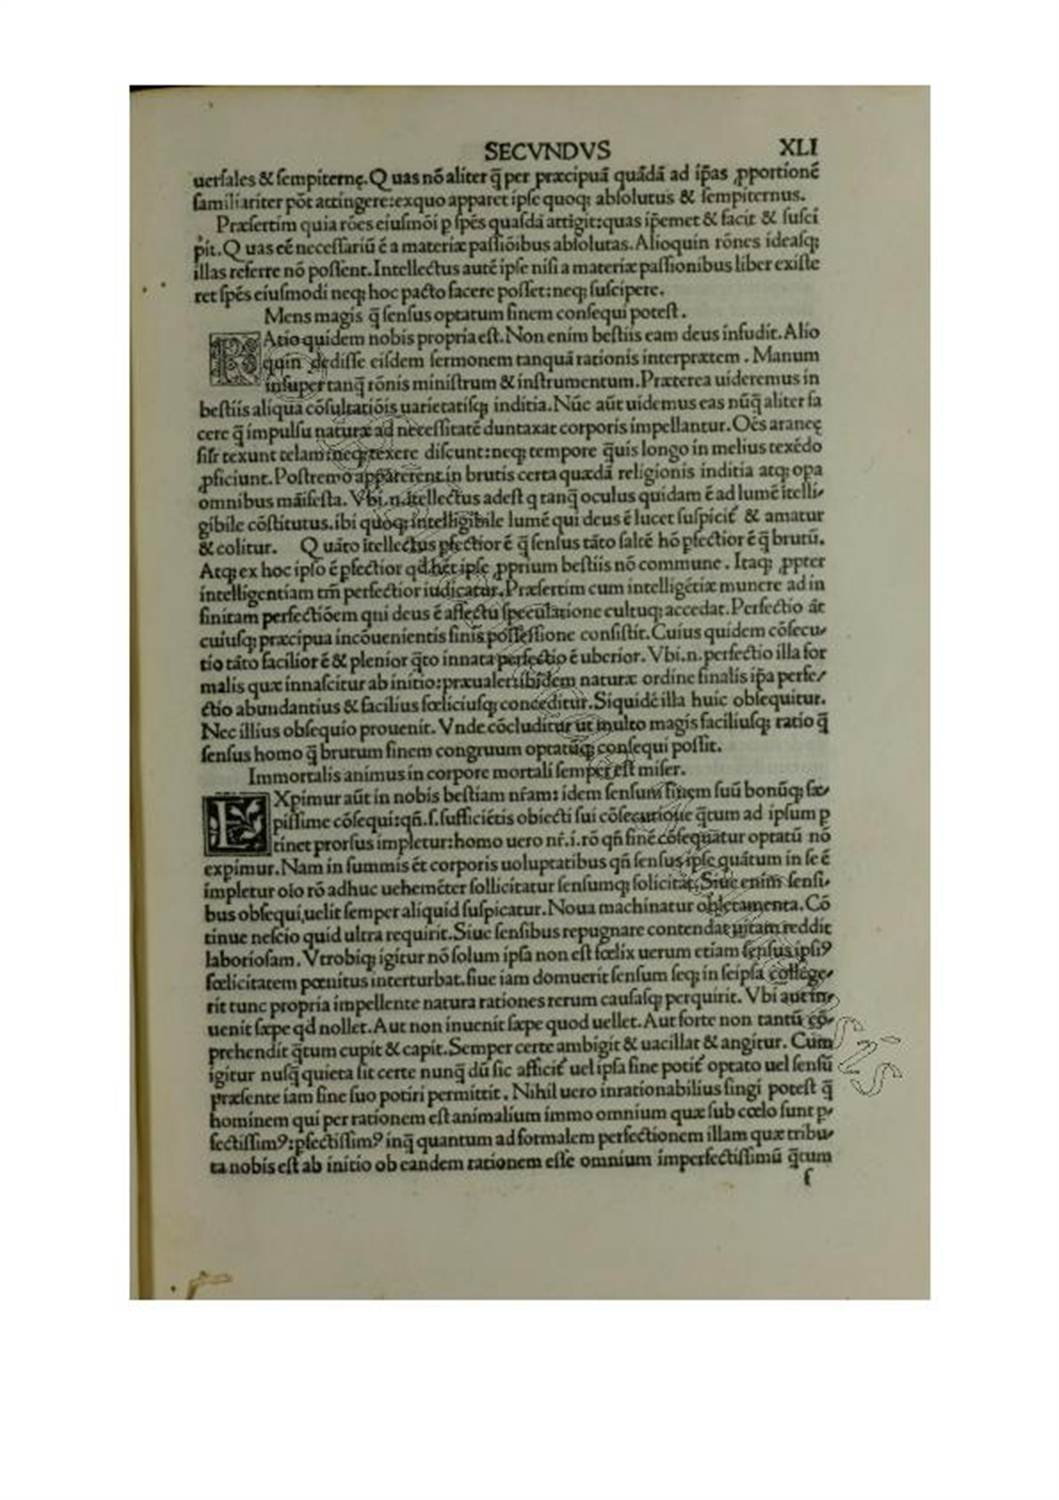 SECVNDVS XLI
uersales & sempiternę. Quas nõ aliter q̃ per præcipuã quãdã ad ip̃as ꝓportionẽ
familiariter põt attingere: ex quo apparet ipse quoq; absolutus & sempiternus.
Præsertim quia rões eiusmõi p spẽs quasdã attigit: quas ip̃emet & facit & susci
pit. Quas eẽ necessariũ ẽ a materiæ passiõibus absolutas. Alioquin rõnes ideasq;
illas referre nõ possent. Intellectus autẽ ipse nisi a materiæ passionibus liber existe
ret spẽs eiusmodi neq; hoc pacto facere posset: neq; suscipere.
Mens magis q̃ sensus optatum finem consequi potest.
RAtio quidem nobis propria est. Non enim bestiis eam deus infudit. Alio
quin dedisse eisdem sermonem tanquã rationis interpretem. Manum
insuper tanq̃ rõnis ministrum & instrumentum. Præterea uideremus in
bestiis aliqua cõsultatiõis uarietatisq; inditia. Nũc aũt uidemus eas nũq̃ aliter fa
cere q̃ impulsu naturæ ad necessitatẽ duntaxat corporis impellantur. Oẽs araneę
silr texunt telam: neq; texere discunt: neq; tempore q̃uis longo in melius texẽdo
ꝓficiunt. Postremo apparerent in brutis certa quædã religionis inditia atq; opa
omnibus mãifesta. Vbi .n. ĩtellectus adest q tanq̃ oculus quidam ẽ ad lumẽ ĩtelli-
gibile cõstitutus. ibi quoq; intelligibile lumẽ qui deus ẽ lucet suspicit̃ & amatur
& colitur. Quãto ĩtellectus pfectior ẽ q̃ sensus tãto saltẽ hõ pfectior ẽ q̃ brutũ.
Atq; ex hoc ipso ẽ pfectior qd hẽt ipse ꝓprium bestiis nõ commune. Itaq; ꝓpter
intelligentiam tm̃ perfectior iudicatur. Præsertim cum intelligẽtiæ munere ad in
finitam perfectiõem qui deus ẽ affectu speculatione cultuq; accedat. Perfectio ãt
cuiusq; præcipua in cõuenientis finis possessione consistit. Cuius quidem cõsecu-
tio tãto facilior ẽ & plenior q̃to innata perfectio ẽ uberior. Vbi .n. perfectio illa for
malis quæ innascitur ab initio: præualet: ibidem naturæ ordine finalis ip̃a perfe-
ctio abundantius & facilius fœliciusq; conceditur. Siquidẽ illa huic obsequitur.
Nec illius obsequio prouenit. Vnde cõcluditur ut multo magis faciliusq; ratio q̃
sensus homo q̃ brutum finem congruum optatũq; consequi possit.
Immortalis animus in corpore mortali semper est miser.
EXpimur aũt in nobis bestiam nr̃am: idem sensum finem suũ bonũq; sæ-
pissime cõsequi: qñ .s. sufficiẽtis obiecti sui cõsecutione q̃tum ad ipsum p
tinet prorsus impletur: homo uero nr̃ .i. rõ qñ finẽ cõsequatur optatũ nõ
expimur. Nam in summis ẽt corporis uoluptatibus qñ sensus ipse quãtum in se ẽ
impletur oĩo rõ adhuc uehemẽter sollicitatur sensumq; solicitat. Siue enim sensi-
bus obsequi uelit semper aliquid suspicatur. Noua machinatur oblectamenta. Cõ
tinue nescio quid ultra requirit. Siue sensibus repugnare contendat uitam reddit
laboriosam. Vtrobiq; igitur nõ solum ipsa non est fœlix uerum etiam sensus ipsiꝰ
fœlicitatem pœnitus interturbat. siue iam domuerit sensum seq; in seipsa college-
rit tunc propria impellente natura rationes rerum causasq; perquirit. Vbi aut in-
uenit sæpe qd nollet. Aut non inuenit sæpe quod uellet. Aut forte non tantũ cõ-
prehendit q̃tum cupit & capit. Semper certe ambigit & uacillat & angitur. Cum
igitur nusq̃ quieta sit certe nunq̃ dũ sic afficit̃ uel ipsa fine potit̃ optato uel sensũ
præsente iam fine suo potiri permittit. Nihil uero inrationabilius fingi potest q̃
hominem qui per rationem est animalium immo omnium quæ sub cœlo sunt p-
fectissimꝰ: pfectissimꝰ inq̃ quantum ad formalem perfectionem illam quæ tribu-
ta nobis est ab initio ob eandem rationem esse omnium imperfectissimũ q̃tum
f